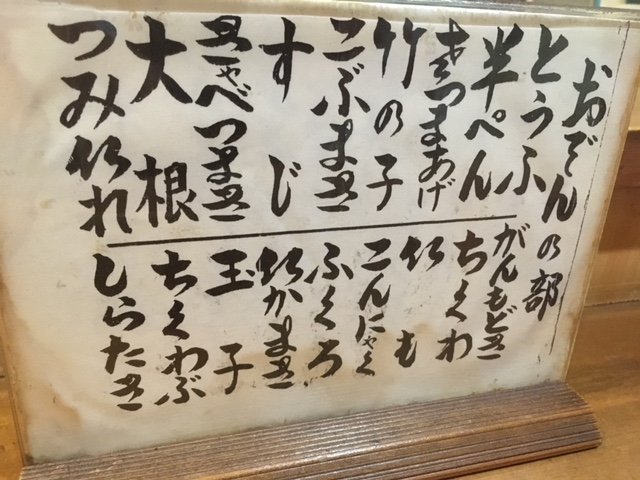 おでんの部
とうふ
半ぺん
さつまあげ
竹の子
こぶまき
すじ
きゃべつまき
大根
つみいれ
がんもどき
ちくわ
いも
こんにゃく
ふくろ
いかまき
玉子
ちくわぶ
しらたき